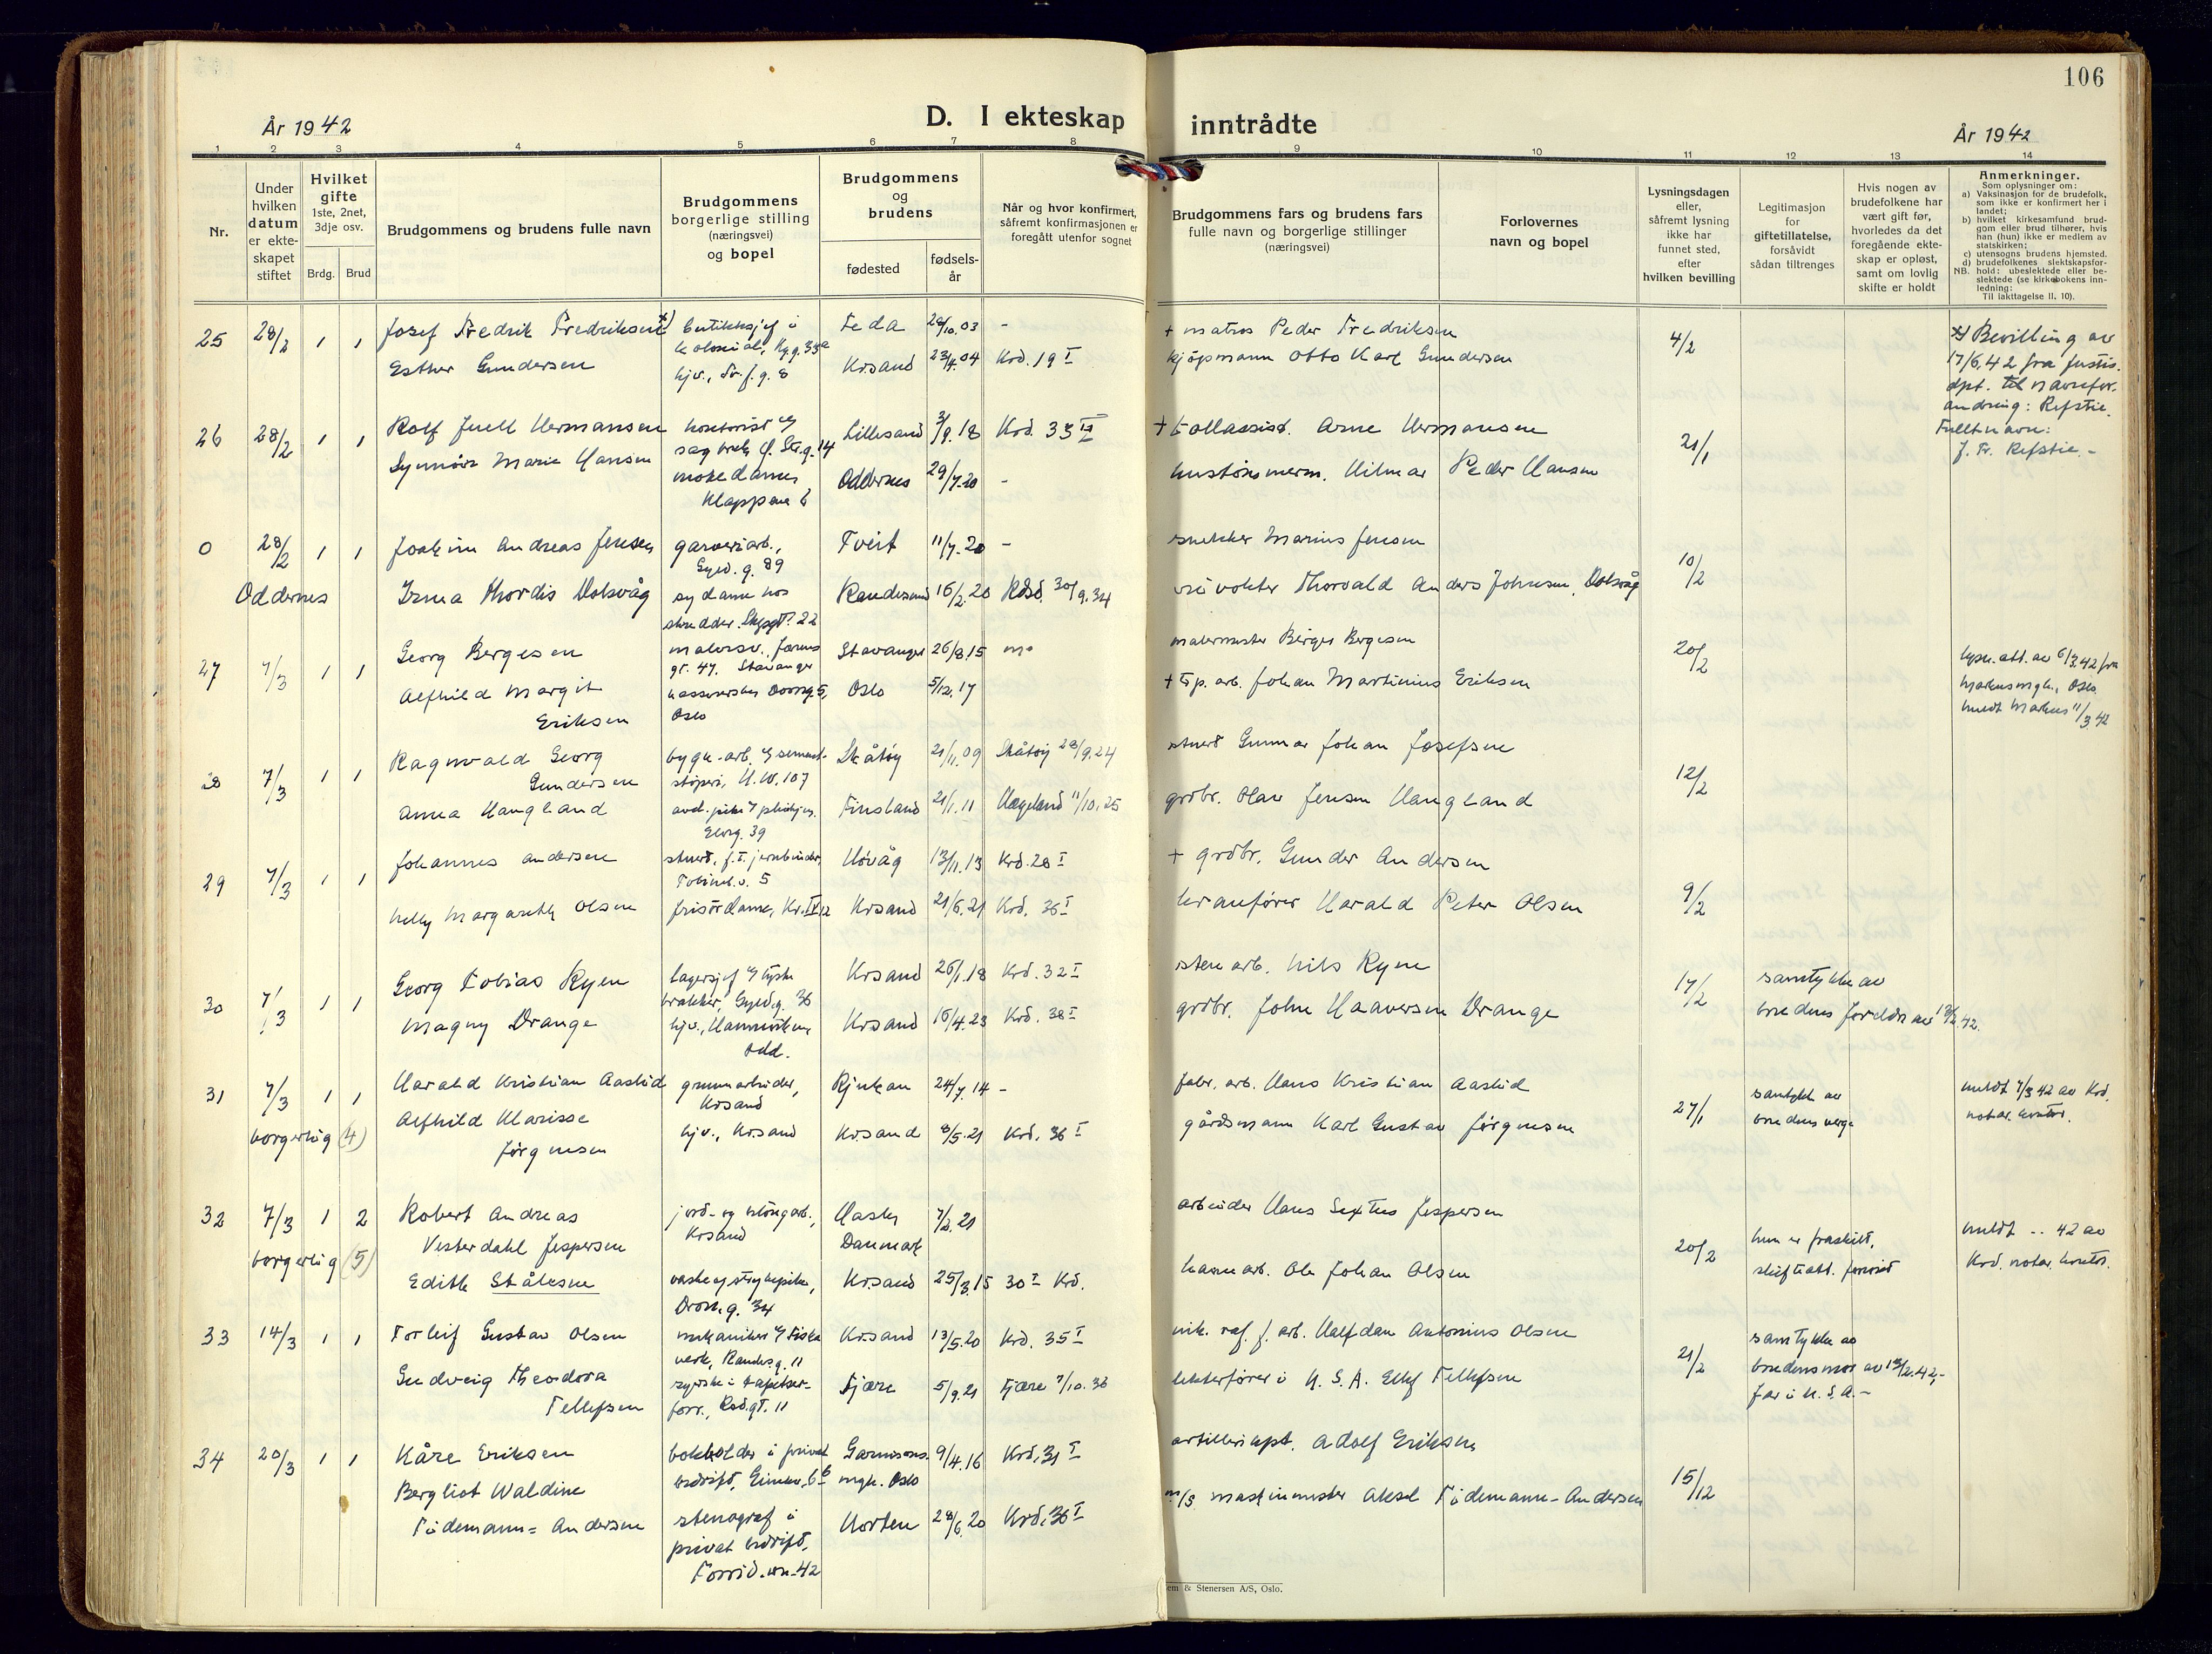 106
År 1942
D. I ekteskap
inntrådte
År 1942
1 2 3 4 5 6 7 8 9 10 11 12 13 14
Nr.
Under
hvilken
datum
er ekte-
skapet
stiftet
Hvilket
gifte
1ste, 2net,
3dje osv.
Brdg.
Brud
Brudgommens og brudens fulle navn
Brudgommens
borgerlige stilling
(næringsvei)
og bopel
Brudgommens
og
brudens
fødested
fødsels-
år
Når og hvor konfirmert,
såfremt konfirmasjonen er
foregått utenfor sognet
Brudgommens fars og brudens fars
fulle navn og borgerlige stillinger
(næringsvei)
Forlovernes
navn og bopel
Lysningsdagen
eller,
såfremt lysning
ikke har
funnet sted,
efter
hvilken bevilling
Legitimasjon
for
giftetillatelse,
forsåvidt
sådan tiltrenges
Hvis nogen av
brudefolkene har
vært gift før,
hvorledes da det
foregående ekte-
skap er opløst,
samt om lovlig
skifte er holdt
Anmerkninger.
Som oplysninger om:
a) Vaksinasjon for de brudefolk,
som ikke er konfirmert her i
landet;
b) hvilket kirkesamfund brud-
gom eller brud tilhører, hvis
han (hun) ikke er medlem av
statskirken;
c) utensogns brudens hjemsted.
d) brudefolkenes slektskapsfor-
NB. hold: ubeslektede eller be-
slektede (se kirkebokens inn-
ledning:
Til iakttagelse II. 10).
25 28/2 1 1 Josef Fredrik Fredriksen x) butikksjef i Feda 28/10.03 - + matros Peder Fredriksen 4/2 x) Bevilling av
kolonial, Kg.g. 33a
Esther Gundersen hjv., Tr.f.g. 8 Krsand 23/4.04 Krd. 19 I kjøpmann Otto Karl Gundersen
17/6.42 fra justis.
dpt. til navnefor-
andring: Refstie.
Fullt navn:
J. Fr. Refstie. -
26 28/2 1 1 Rolf Juell Hermansen Lillesand 3/9.18 Krd. 33 II + tollassist. Arne Hermansen 21/1
Synnøve Marie Hansen motedame, Oddernes 29/7.20 - Hilmar Peder Hansen
Klappane 6
0 28/2 1 1 Joakim Andreas Jensen garveriarb., Tveit 11/7.20 - snekker Marius Jensen 10/2
Gyld. g. 89
Oddernes Irma Thordis Dolsvåg sydame hos Randesund 16/2.20 Rdsd. 30/9.34 Thorvald Anders Johnsen Dolsvåg
skredder. Skippgt. 22
27 7/3 1 1 Georg Bergesen malersv., Stavanger 26/8.15 malermester Börge Bergesen 20/2
gt. 47. Stavanger
Alfhild Margit Oslo 5/12.17 + tsp. arb. Johan Martinius Eriksen
Eriksen Oslo
lysn. att. av 6/3.42 fra
Markus mgh., Oslo.
meldt Markus 11/3.42
28 7/3 1 1 Ragnvald Georg bygn-arb. Skåtøy 21/11.09 Skåtøy 28/9.24 stuert Gunnar Johan Josefsen 12/2
Gundersen støperi, H.W. 107
Anna Haugland Finsland 21/1.11 Hægeland 11/10.25 grdbr. Olav Jensen Haugland
Elvg. 39
29 7/3 1 1 Johannes Andersen stuert, f.t. jernbinder, Høvåg 13/11.13 Krd. 28 I + grdbr. Gunder Andersen 9/2
Tobineb.v. 5
Nelly Margarethe Olsen frisördame, Kr. IV 12 Krsand 21/6.21 Krd. 36 I kranfører Harald Peter Olsen
30 7/3 1 1 Georg Tobias Ryen lagersjef Krsand 26/1.18 Krd. 32 I sten arb. Nils Ryen 17/2 samtykke av
brakker, Gyld.g. 36
Magny Drange hjv., Krsand 16/4.23 Krd. 38 I grdbr. John Haaversen Drange brudens foreldre av 13/2.42.
Odd.
31 7/3 1 1 Harald Kristian Aaslid grunnarbeider, Rjukan 24/7.14 - fabr. arb. Hans Kristian Aaslid 27/1 samtykke av meldt 7/3 42 av Krd.
Krsand
borgerlig (4) Alfhild Klarisse hjv., Krsand Krsand 8/5.21 Krd. 36 I gårdsmann Karl Gustav Jørgensen brudens verge notar. kontor.
Jørgensen
32 7/3 1 2 Robert Andreas jord- og betongarb., Hasle 7/2.21 arbeider Hans Sextus Jespersen 20/2 hun er fraskilt, meldt .. 42 av
Vesterdahl Jespersen Krsand Danmark
borgerlig (5) Edith Stålesen vaske og strykepike, Krsand 25/3.15 30 I Krd. havnearb. Ole Johan Olsen skifteatt. forevist Krd. notar. kontor.
Dronn.g. 34
33 14/3 1 1 Torleif Gustav Olsen mekaniker Krsand 13/5.20 Krd. 35 I nik. raf. f. arb. Halfdan Antonius Olsen 21/2 samtykke av
verk, Randesg. 11
Gudveig Theodora syerske i tapetser- Fjære 5/9.21 Fjære 7/10.36 lekterfører i U.S.A. Ellef Tellefsen brudens mor av 13/2.42,-
Tellefsen forr., Rsd.gt. 11 far i U.S.A. -
34 20/3 1 1 Kåre Eriksen bokholder i privat Garnisons- 9/4.16 Krd. 31 I artillerikpt. Adolf Eriksen 15/12
bedrift, mgh. Oslo
Bergliot Waldine stenograf i Horten 28/6.20 Krd. 36 I m/s maskinmester Aksel Tidemann-Andersen
Tidemann= Andersen privat bedrift,
em & Stenersen A/S, Oslo.